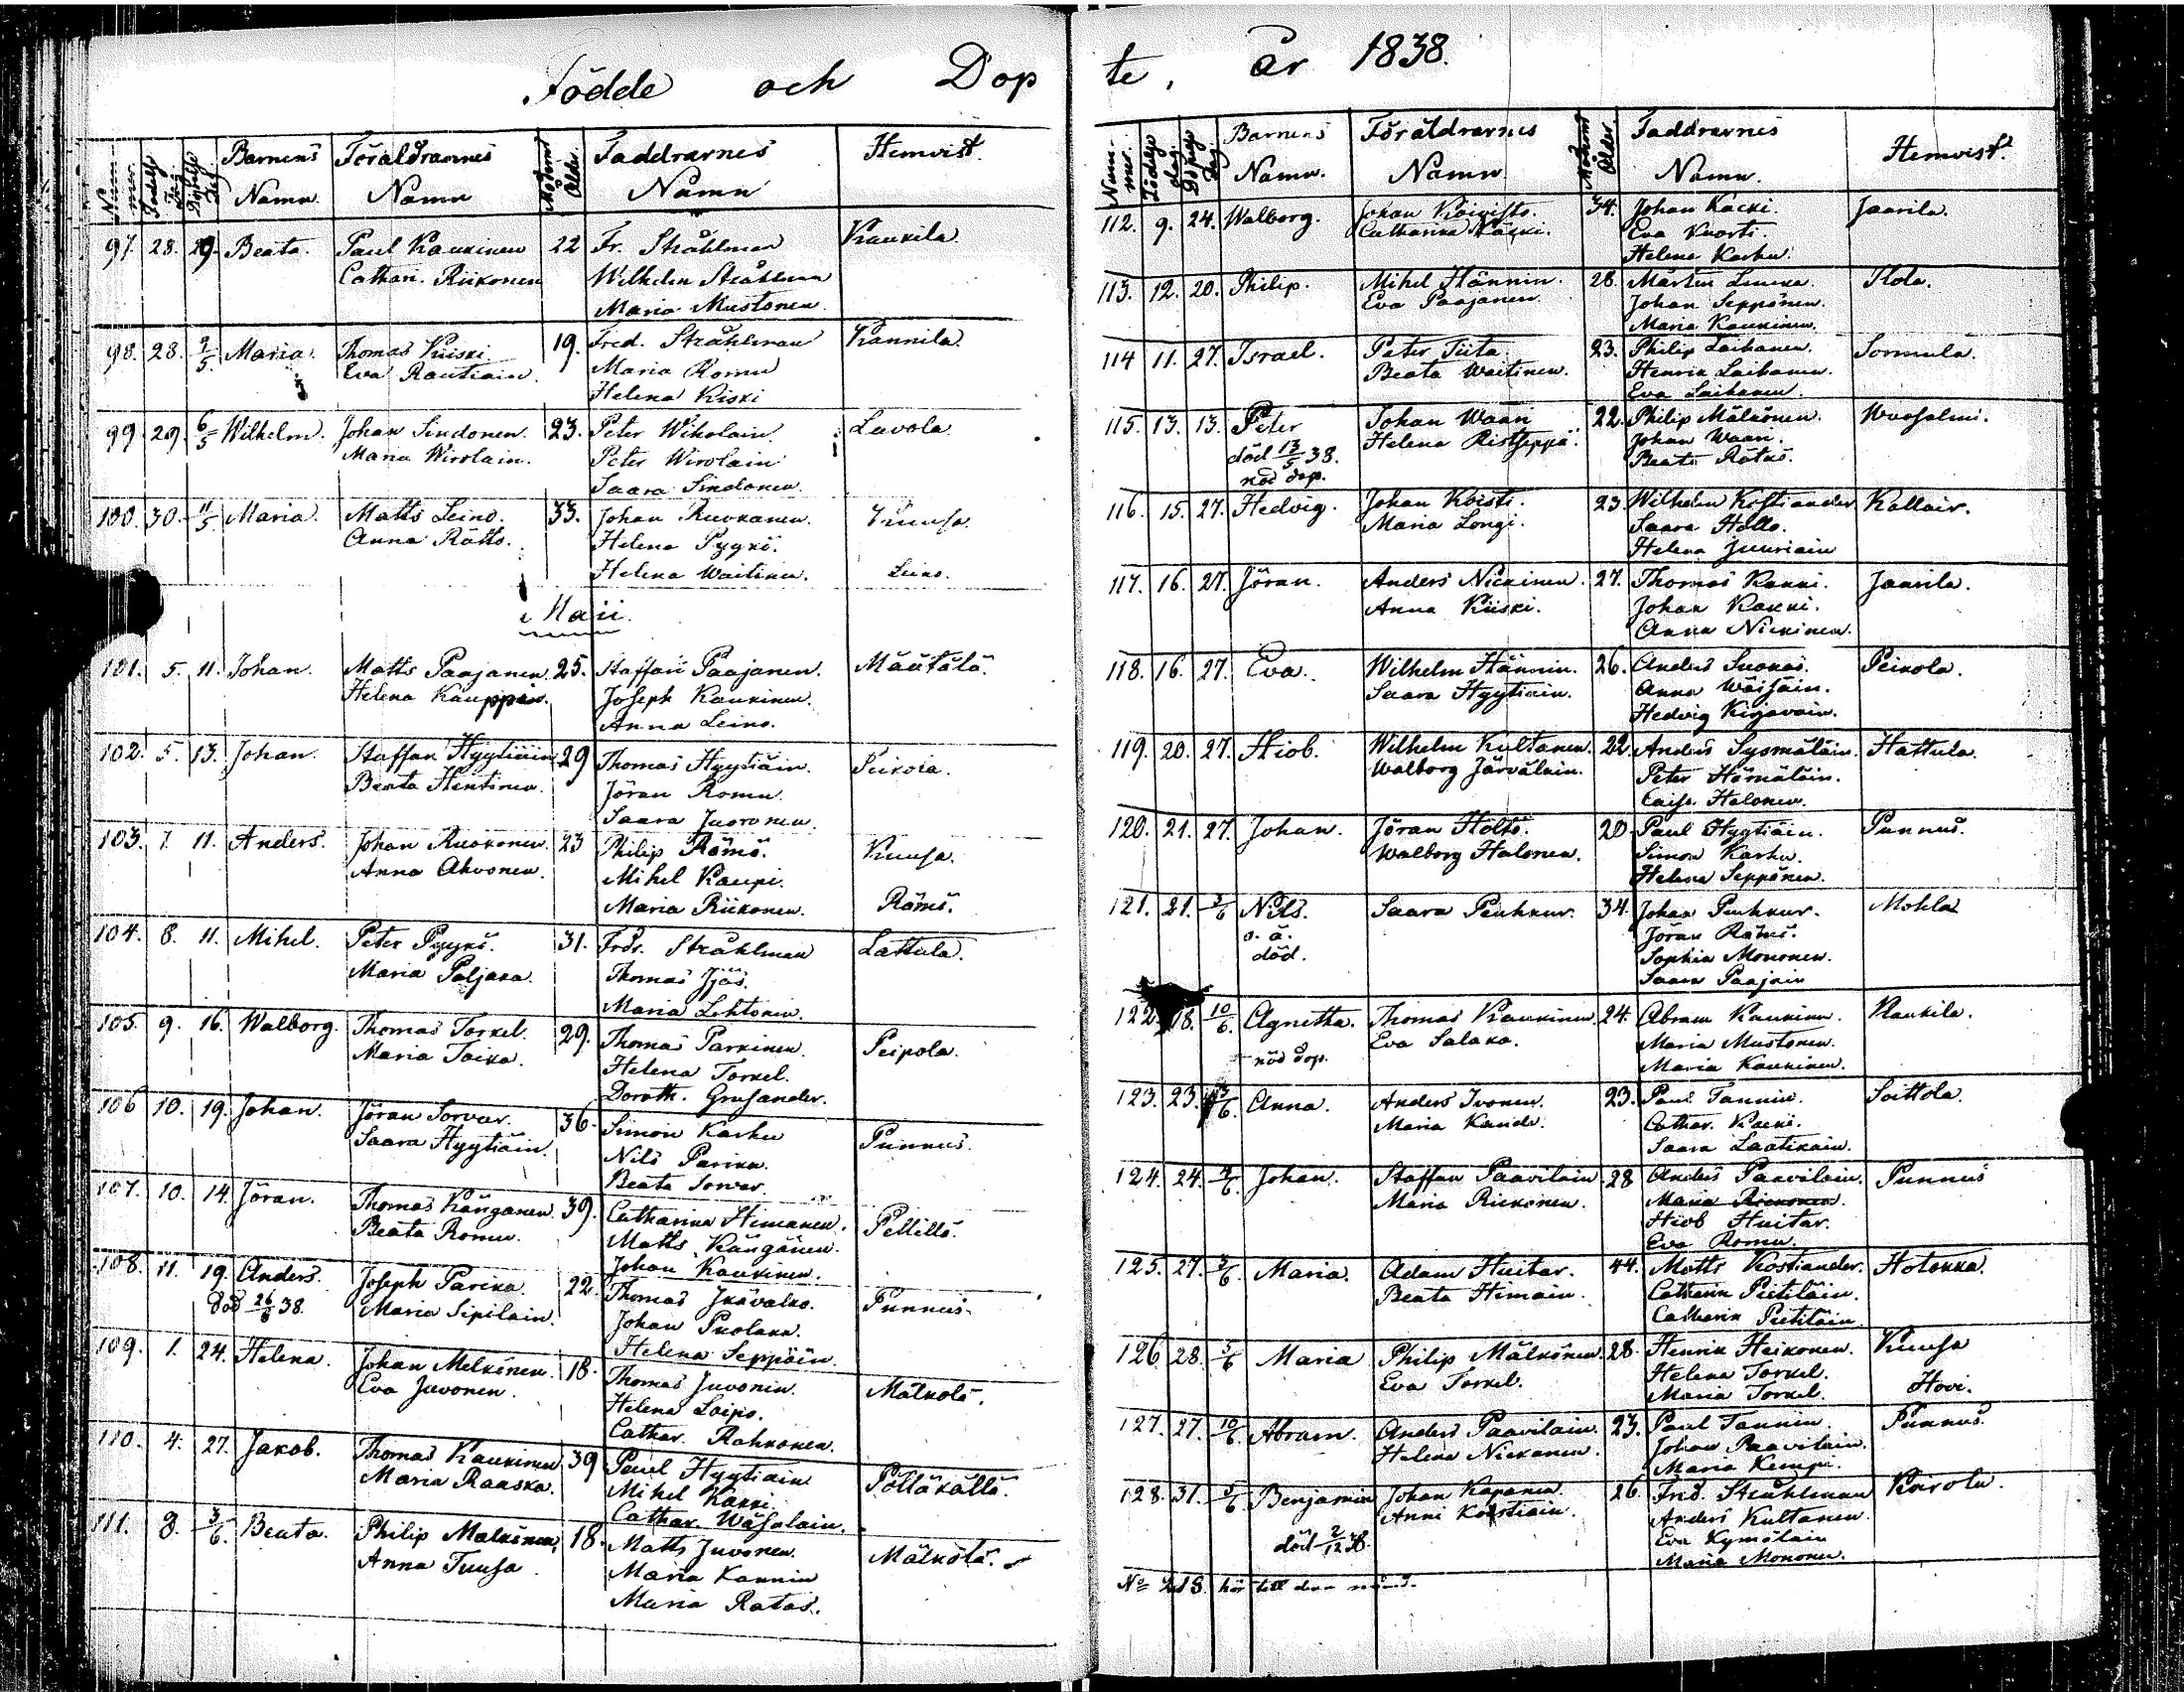 Födde och Dop
Num-mer. Födelse Dag Döpelse Dag Barnens Namn Föräldrarnes Namn Modrens Ålder. Faddrarnes Namn Hemvist.
97. 28. 29. Beata. Paul Kaukinen 22 Fr. Stråhlman Kaukila.
Cathari. Riikonen Wilhelm Stråhlman
Maria Mustonen.
98. 28. 2/5. Maria. Thomas Kiiski 19. Fred. Stråhlman Kannila.
Eva Rautiain. Maria Romu
Helena Kiski
99. 29. 6/5 Wilhelm. Johan Sindonen. 23. Peter Wikolain. Lavola.
Maria Wirolain. Peter Wirolain
Saara Sindonen.
100. 30. 11/5 Maria. Matts Leino. 33. Johan Ruokanen. Kuusa.
Anna Rättö. Helena Pyyki.
Helena Waitinen. Leino.
Maii.
101. 5. 11. Johan. Matts Paajanen 25. Staffan Paajanen. Määtälä.
Helena Kauppin. Joseph Kaukinen.
Anna Leino.
102. 5. 13. Johan. Staffan Hyytiäin 29 Thomas Hyytiäin. Peikola.
Beata Hentinen. Jöran Romu.
Saara Juvonen.
103. 7. 11. Anders. Johan Ruokonen. 23 Philip Rämö. Kuusa.
Anna Ahvonen. Mihel Kaupi.
Maria Riikonen. Rämö.
104. 8. 11. Mihel. Peter Pyyki. 31. Frdr. Stråhlman Lattula.
Maria Paljaka. Thomas Jjäs.
Maria Lehtonen.
105. 9. 16. Walborg. Thomas Torkel. 29. Thomas Parkinen. Peipola.
Maria Toika. Helena Torkel.
Doroth. Grusander.
106 10. 19. Johan. Jöran Sorvar. 36. Simon Karhu Punnus.
Saara Hyytiäin. Nils Parikka.
Beata Sorvar.
107. 10. 14. Jöran. Thomas Känganen. 39. Catharina Himanen. Pellilä.
Beata Romu. Matts Kängänen.
Johan Kaukinen.
108. 11. 19. Anders. Joseph Parika. 22. Thomas Ikävalko. Punnus.
död 26/6 38. Maria Sipilain. Johan Puolakka.
Helena Seppöin.
109. 1. 24. Helena. Johan Melkinen. 18. Thomas Juvonin. Mälkölä.
Eva Juvonen. Helena Loipo.
Cathar. Rahkonen.
110. 4. 27. Jakob. Thomas Kaukinen 39 Paul Hyytiäin Pölläkälä.
Maria Raaska. Mihel Kakki.
Cathar. Wäsalain.
111. 8. 3/6. Beata. Philip Malkönen. 18. Matts Juvonen. Mälkölä.
Anna Tuusa. Maria Kannin
Maria Ratas.
te, år 1838.
Num-mer. Födelse dag. Döpelse Dag. Barnens Namn. Föräldrarnes Namn Modrens Ålder. Faddrarnes Namn. Hemvist.
112. 9. 24. Walborg. Johan Koivisto. 34. Johan Käcki. Jaarila.
Catharina Käcki. Eva Kuorti.
Helena Karhu.
113. 12. 20. Philip. Mihel Hännin. 28. Mårten Ilola.
Eva Paajanen. Johan Seppönen.
Maria Kaukinen.
114 11. 27. Israel. Peter Tiita. 23. Philip Laihanen. Sormula.
Beata Waitinen. Henrik Laihanen.
Eva Laihanen.
115. 13. 13. Peter Johan Waan 22. Philip Mälkönen. Wuosalmi.
död 13/5 38. Helena Ristseppä. Johan Waan.
nöd dop. Beata Rätus.
116. 15. 27. Hedvig. Johan Koisti. 23 Wilhelm Kostiander Kallair.
Maria Longi. Saara Hollo.
Helena Juuriain
117. 16. 27. Jöran. Anders Nickinen. 27. Thomas Kakki. Jaarila.
Anna Kiiski. Johan Kakki.
Anna Nickinen.
118. 16. 27. Eva. Wilhelm Hännin. 26. Anders Suokas. Peikola.
Saara Hyytiäin. Anna Wäisäin.
Hedvig Kirjavain.
119. 20. 27. Hiob. Wilhelm Kultanen. 22. Anders Sysmäläin. Hattula.
Walborg Järväläin. Peter Hämäläin.
Caisa Halonen.
120. 21. 27. Johan. Jöran Holtö. 20 Paul Hyytiäin. Punnus.
Walborg Halonen. Simon Karhu.
Helena Seppänen.
121. 21. 3/6 Nils. Saara Peuhkur. 34. Johan Peuhkur. Mohla
o. ä. Jöran Rämö.
död. Sophia Mononen.
Saara Paajain
122. 18. 10/6. Agnetha. Thomas Kaukinen. 24. Abram Kaukinen. Kaukila.
nöd dop. Eva Salaka. Maria Mustonen.
Maria Kaukinen.
123. 23. 13/6. Anna. Anders Ivonen. 23. Paul Tannin. Soittola.
Maria Kandi. Cathar. Kacki.
Saara Laatikain.
124. 24. 4/6. Johan. Staffan Paavilain 28 Anders Paavilain. Punnus
Maria Riikonen. Maria Riikonen.
Hiob Huitar.
Eva Romu.
125. 27. 3/6. Maria. Adam Huitar. 44. Matts Kostiander. Hotakka.
Beata Himain. Catharin Pietiläin.
Catharin Pietiläin.
126 28. 5/6 Maria Philip Mälkönen. 28. Henrik Heikonen. Kuusa
Eva Torkel. Helena Torkel.
Maria Torkel. Hovi.
127. 27. 10/6. Abram. Anders Paavilain. 23. Paul Tannin. Punnus.
Helena Nickanen. Johan Paavilain.
Maria Kempi.
128. 31. 5/6 Benjamin Johan Kapanen. 26. Fred. Stråhlman Kairola.
Anni Kostiain. Anders Kultanen.
död 2/12 38. Eva Kymäläin
Maria Mononen.
No 218. hör till den månd.